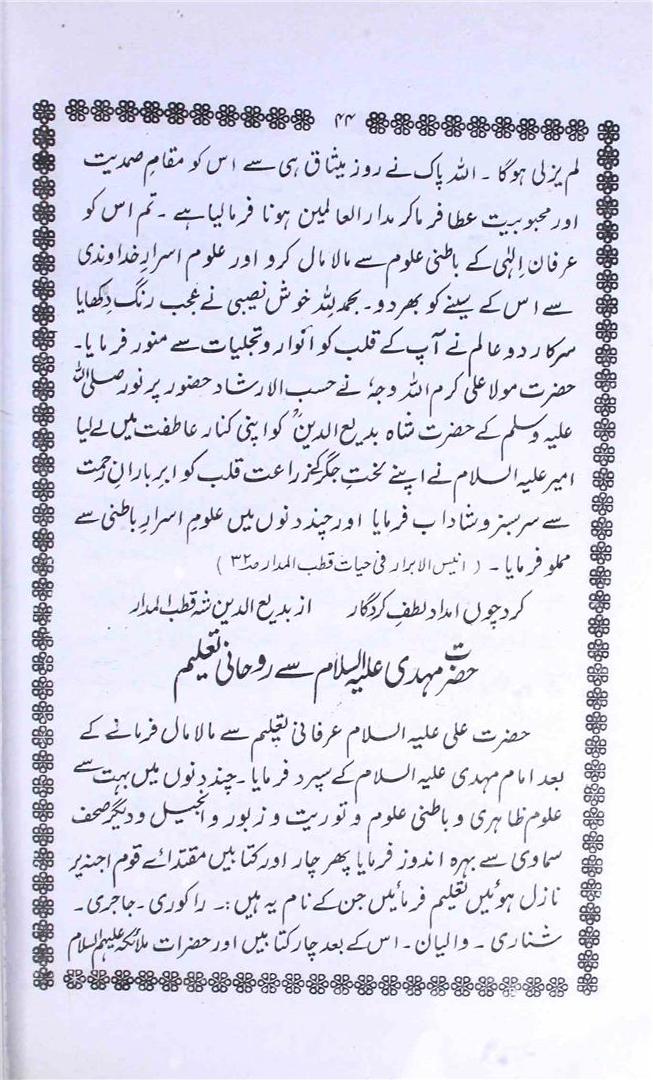 ۴۴
لم یزلی ہوگا ۔ اللہ پاک نے روز میثاق ہی سے اس کو مقامِ صمدیت
اور محبوبیت عطا فرما کر مدار العالمین ہونا فرما لیا ہے ۔ تم اس کو
عرفانِ الٰہی کے باطنی علوم سے مالا مال کرو اور علوم اسرارِ خداوندی
سے اس کے سینے کو بھر دو ۔ بحمدللہ خوش نصیبی نے عجب رنگ دکھایا
سرکار دو عالم نے آپ کے قلب کو انوار و تجلیات سے منور فرمایا ۔
حضرت مولا علی کرم اللہ وجہٗ نے حسب الارشاد حضور پر نور صلی اللہ
علیہ وسلم کے حضرت شاہ بدیع الدینؒ کو اپنی کنار عاطفت میں لے لیا
امیر علیہ السلام نے اپنے لختِ جگر کے زراعت قلب کو ابرِ بارانِ رحمت
سے سرسبز و شاداب فرمایا اور چند دنوں میں علومِ اسرارِ باطنی سے
مملو فرمایا ۔ ( انیس الابرار فی حیات قطب المدار ص۳۲ )
کرد چوں امداد لطفِ کردگار از بدیع الدین شہ قطب المدار
حضرت مہدی علیہ السلام سے روحانی تعلیم
حضرت علی علیہ السلام عرفانی تعلیم سے مالا مال فرمانے کے
بعد امام مہدی علیہ السلام کے سپرد فرمایا ۔ چند دنوں میں بہت سے
علوم ظاہری و باطنی علوم و توریت و زبور و انجیل و دیگر صحف
سماوی سے بہرہ اندوز فرمایا پھر چار اور کتابیں مقتدائے قوم اجنہ پر
نازل ہوئیں تعلیم فرمائیں جن کے نام یہ ہیں :۔ راکوری ۔ جاجری ۔
شناری ۔ والیان ۔ اس کے بعد چار کتابیں اور حضرات ملائکہ علیہم السلام